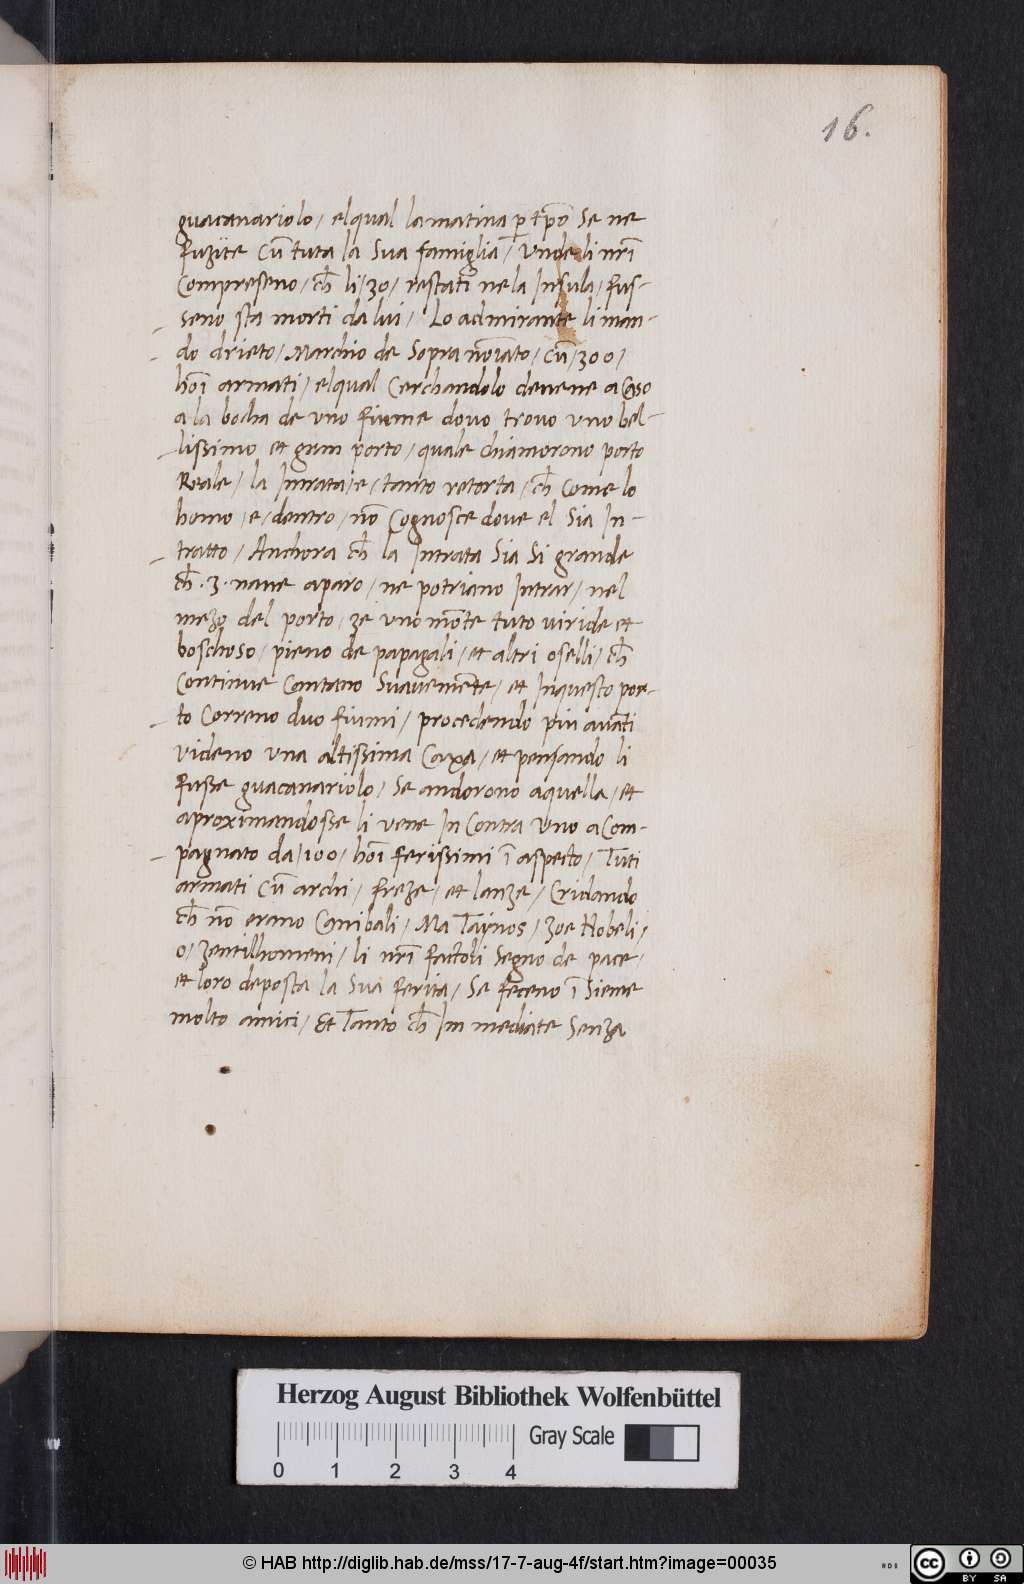 16.
guacanariolo / el qual la matina p tp̄o Se ne
fuzite Cū tuta la Sua famiglia / Unde li nr̄i
Compreseno / ch̄ li / 30 / restati ne la Insula / fus-
seno sta morti da lui / Lo admirante li man-
do drieto / Marchio de Sopra noīato / cū / 300 /
hoī armati / el qual Cerchandolo devene a Caso
a la bocha de uno fiume dovo trovo uno bel-
lissimo et gran porto / quale chiamorono porto
Reale / la Intrata / e / tanto retorta / ch̄ Come lo
homo / e / dentro / nō Cognosce dove el Sia In-
tratto / Anchora ch̄ la Intrata Sia Si grande
ch̄ . 3 . nave a paro / ne potriano Intrar / nel
mezo del porto / ze uno mōte tuto viride et
boschoso / pieno de papagali / et altri oselli / ch̄
Continue Cantano Suavemēte / et In questo por-
to Correno duo fiumi / procedendo piu avāti
videno una altissima Caxa / et pensando li
fusse guacanariolo / Se andorono a quella / et
aproximandosse li vene In Contra Uno a Com-
pagnato da / 100 / hoī ferissimi ī aspecto / Tuti
armati Cū archi / freze / et lanze / Cridando
ch̄ nō erano Canibali / Ma Taynos / zoe Nobeli /
o / zentilhomeni / li nr̄i factoli Segno de pace /
et loro deposta la Sua ferita / Se feceno ī Sieme
molto amici / Et Tanto ch̄ Im mediate Senza
Herzog August Bibliothek Wolfenbüttel
Gray Scale
0 1 2 3 4
© HAB http://diglib.hab.de/mss/17-7-aug-4f/start.htm?image=00035
cc BY SA